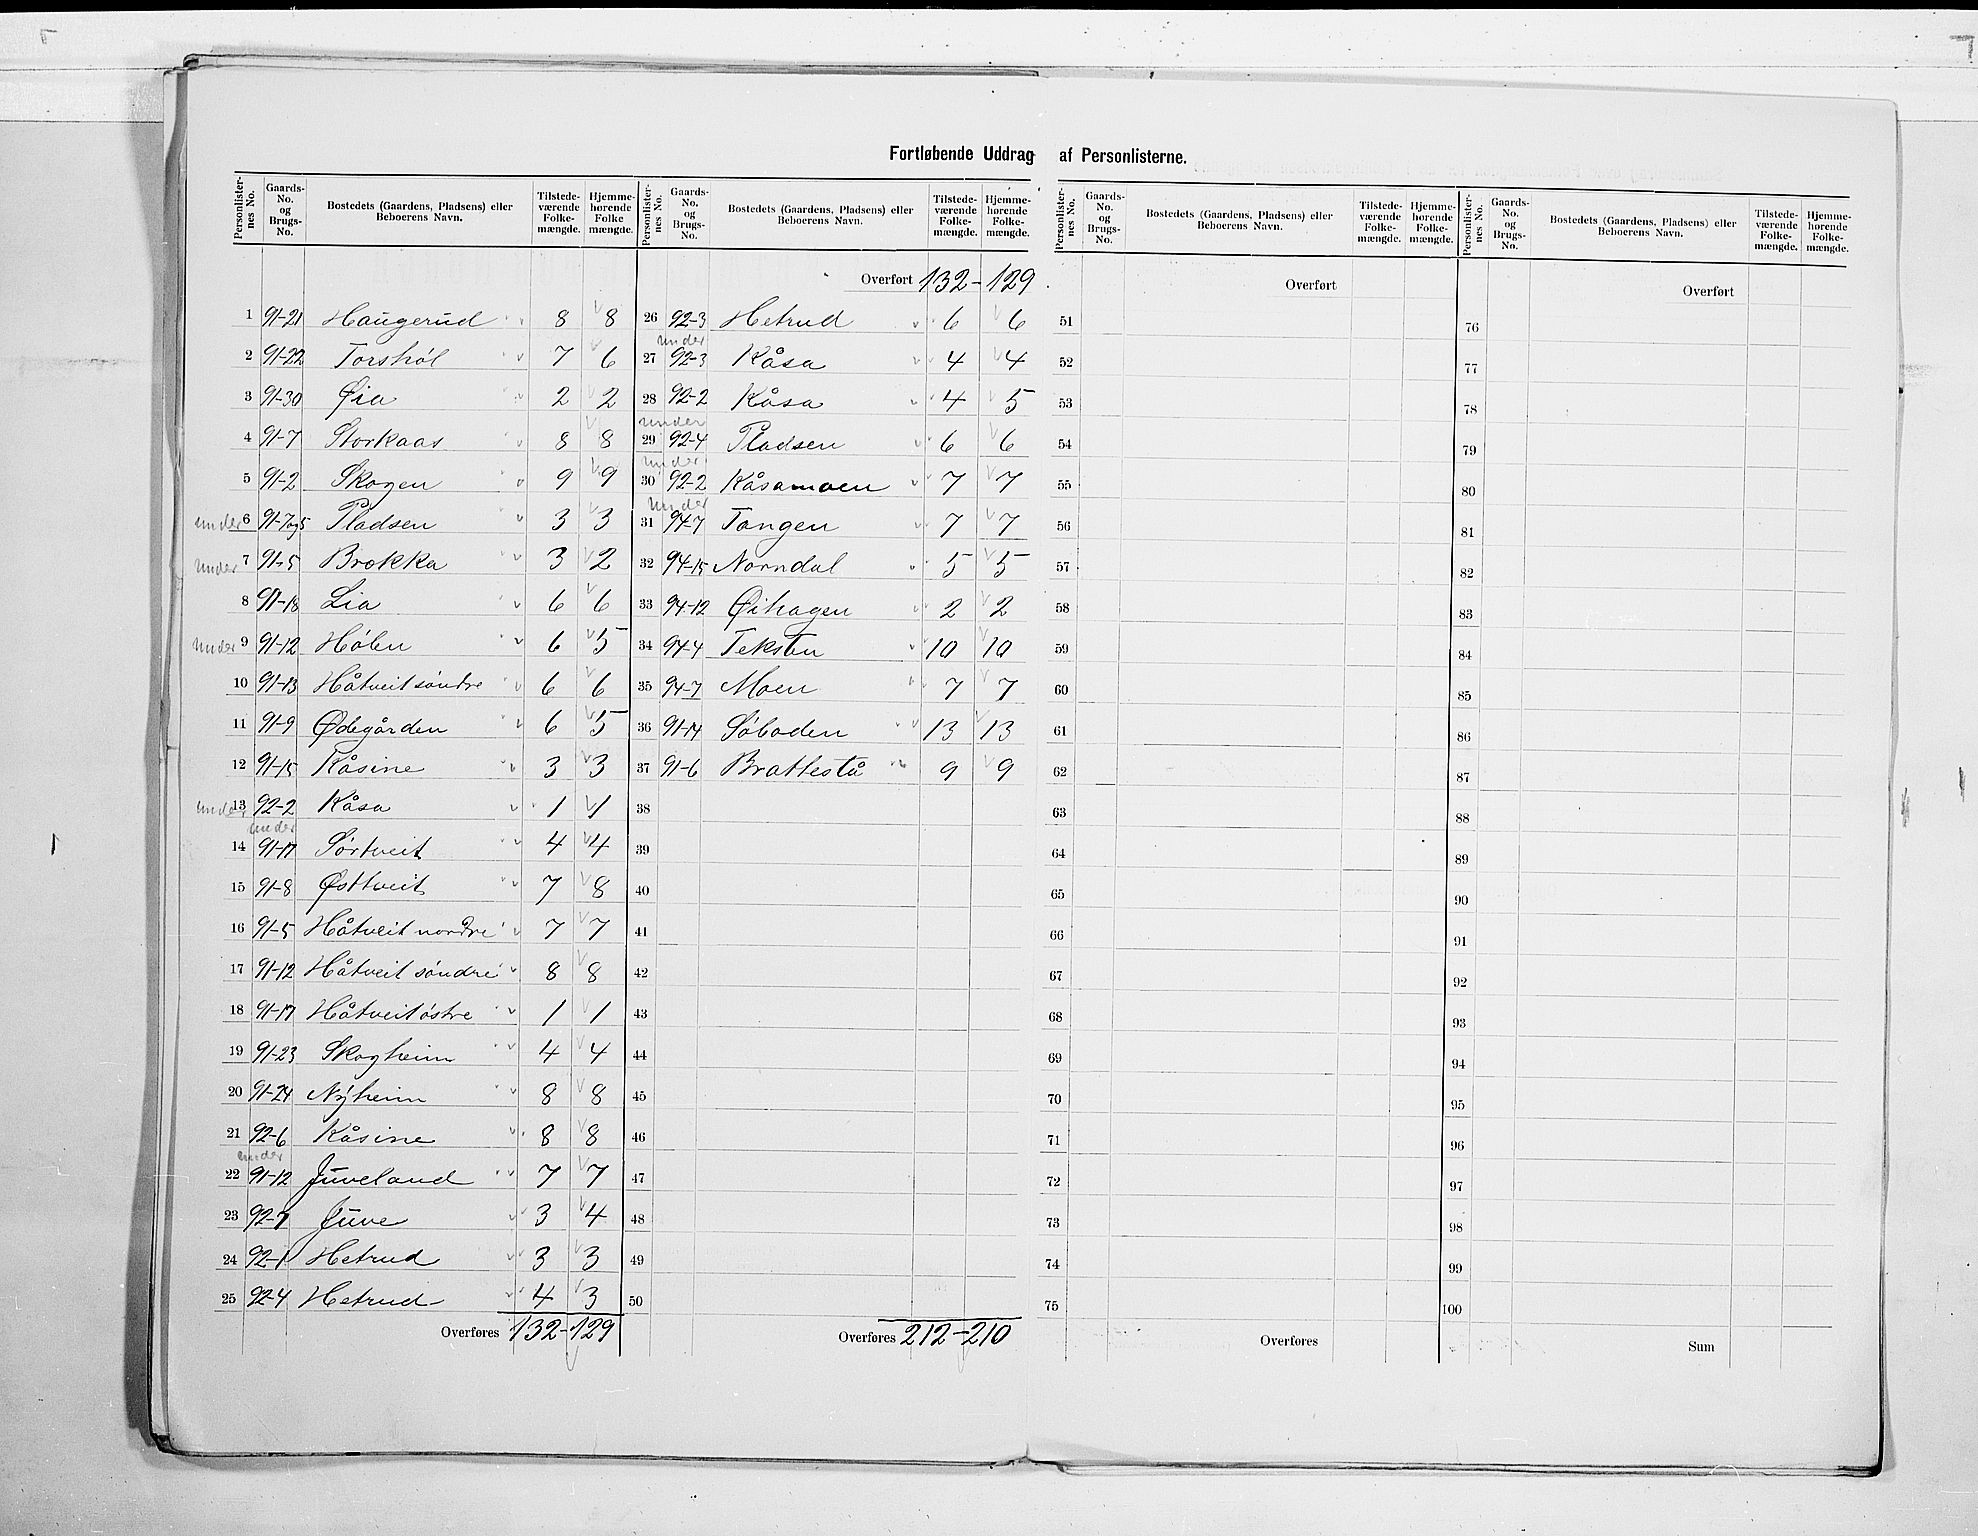 Fortløbende Uddrag af Personlisterne.
Personlister-nes No. Gaards-No. og Brugs-No. Bostedets (Gaardens, Pladsens) eller Beboerens Navn. Tilstede-værende Folke-mængde. Hjemme-hørende Folke mængde.
1 91-21 Haugerud 8 8
2 91-22 Torshøl 7 6
3 91-30 Øia 2 2
4 91-7 Storkaas 8 8
5 91-2 Skogen 9 9
under 6 91-7og5 Pladsen 3 3
under 7 91-5 Brokka 3 2
8 91-18 Lia 6 6
under 9 91-12 Hølen 6 5
10 91-13 Håtveit søndre 6 6
11 91-9 Ødegården 6 5
12 91-15 Kåsine 3 3
under 13 92-2 Kåsa 1 1
under
14 91-17 Sørtveit 4 4
15 91-8 Østtveit 7 8
16 91-5 Håtveit nordre 7 7
17 91-12 Håtveit søndre 8 8
18 91-17 Håtveit østre 1 1
19 91-23 Skogheim 4 4
20 91-24 Nyheim 8 8
21 92-6 Kåsine 8 8
under
22 91-12 Juveland 7 7
23 92-7 Juve 3 4
24 92-1 Hetrud 3 3
25 92-4 Hetrud 4 3
Overføres 132-129
Personlister-nes No. Gaards-No. og Brugs-No. Bostedets (Gaardens, Pladsens) eller Beboerens Navn. Tilstede-værende Folke-mængde. Hjemme-hørende Folke-mængde.
Overført 132-129
26 92-3 Hetrud 6 6
under
27 92-3 Kåsa 4 4
28 92-2 Kåsa 4 5
under
29 92-4 Pladsen 6 6
under
30 92-2 Kåsamoen 7 7
under
31 94-7 Tangen 7 7
32 94-15 Norndal 5 5
33 94-12 Øihagen 2 2
34 94-4 Teksten 10 10
35 94-7 Moen 7 7
36 91-14 Søboden 13 13
37 91-6 Brattestå 9 9
38
39
40
41
42
43
44
45
46
47
48
49
50
Overføres 212-210
Personlister-nes No. Gaards-No. og Brugs-No. Bostedets (Gaardens, Pladsens) eller Beboerens Navn. Tilstede-værende Folke-mængde. Hjemme-hørende Folke-mængde.
Overført
51
52
53
54
55
56
57
58
59
60
61
62
63
64
65
66
67
68
69
70
71
72
73
74
75
Overføres
Personlister-nes No. Gaards-No. og Brugs-No. Bostedets (Gaardens, Pladsens) eller Beboerens Navn. Tilstede-værende Folke-mængde. Hjemme-hørende Folke-mængde.
Overført
76
77
78
79
80
81
82
83
84
85
86
87
88
89
90
91
92
93
94
95
96
97
98
99
100
Sum